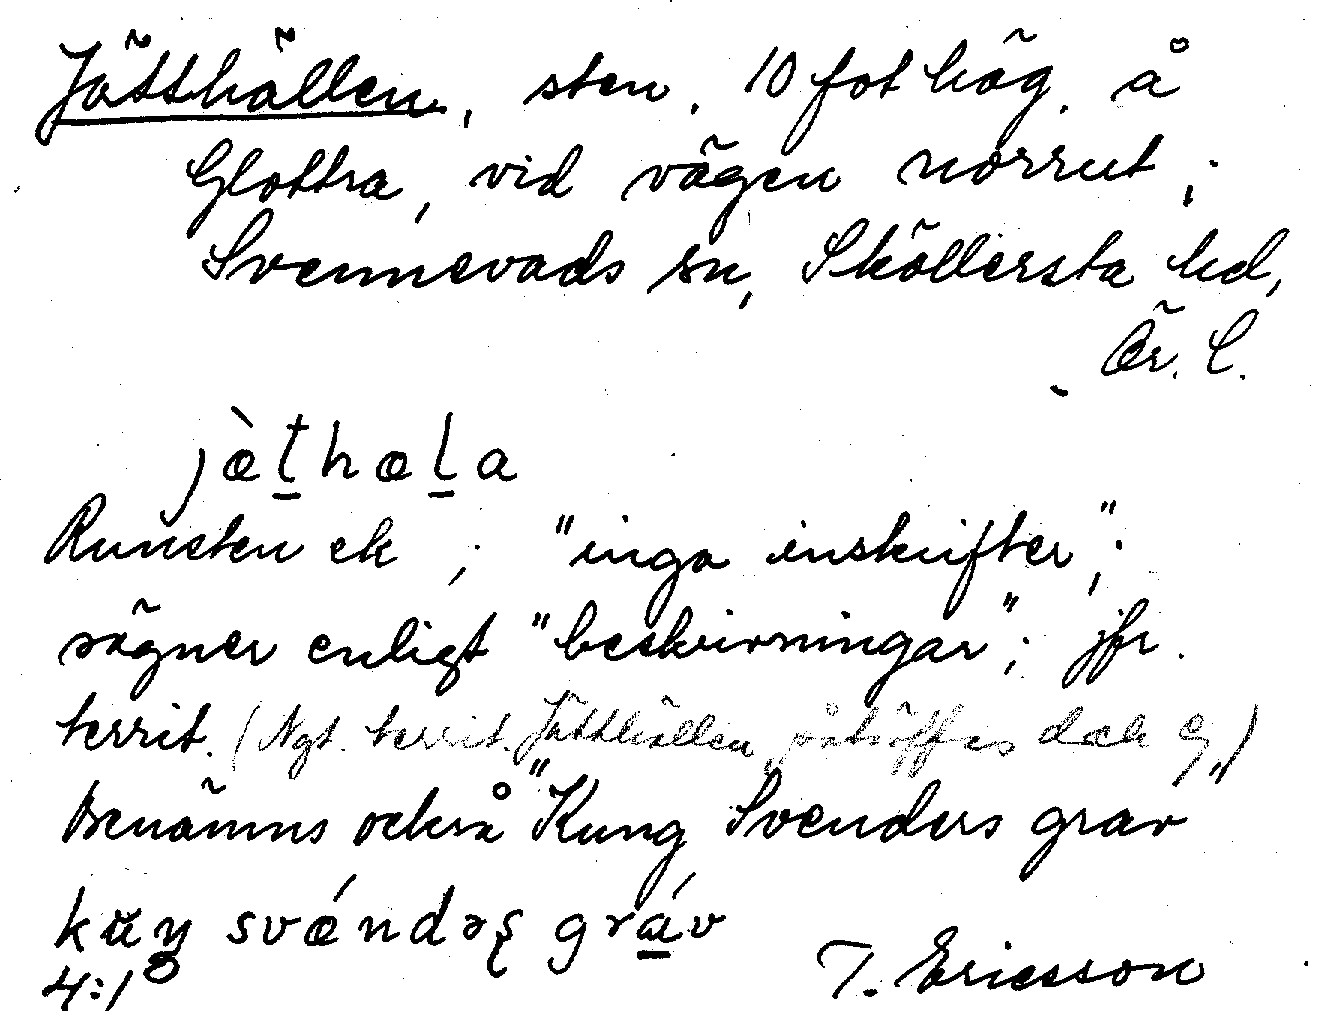 Jätthällen, sten, 10 fot hög, å
Glottra, vid vägen norrut;
Svennevads sn, Sköllersta hd,
Ör. L.
jæ̀t̲hæl̲a
Runsten ek; "inga inskrifter";
sägner enligt "beskrivningar"; jfr.
territ. (Ngt. territ. Jätthällen påträffas dock ej)
Benämns också "Kung Svenders grav"
kuŋ svǽndəʂ grá̲v
4:1
T. Ericsson